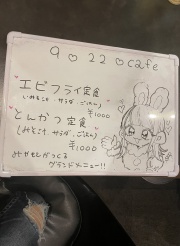 9♡22♡cafe
エビフライ定食
(みそしる、サラダ、ごはん)
¥1000
とんかつ定食
(みそしる、サラダ、ごはん)
¥1000
グランドメニュー!!